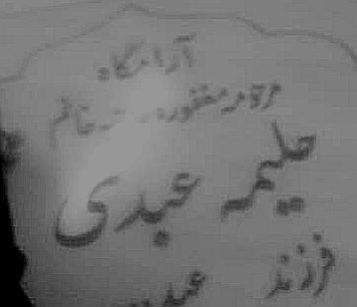 آرامگاه
مرحومه مغفوره خانم
حلیمه عبدی
فرزند